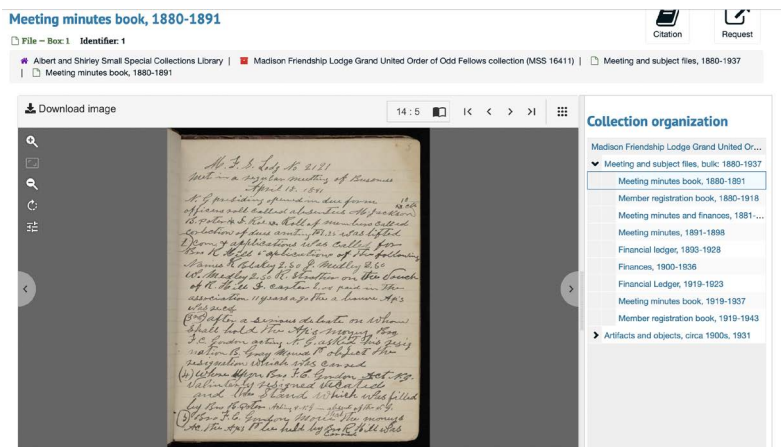 Meeting minutes book, 1880-1891
File — Box: 1 Identifier: 1
Citation
Request
Albert and Shirley Small Special Collections Library | Madison Friendship Lodge Grand United Order of Odd Fellows collection (MSS 16411) | Meeting and subject files, 1880-1937
| Meeting minutes book, 1880-1891
Download image
14 : 5
M. F. S. Lodg No 2121
Met in a regular meeting of Buisness
April 18. 1881
N. G presiding opened in due form
officers roll called absentees Jackson
Roll of members called
collection of dues was lifted
applications was called for
Bro R Hill applications of the following
Names R Blakey 2.50 J. Medley 2.50
W. Medley 2.50 R. on the vouch
of R. Hill paid in the
association 11 years ago
was recd
after a serious debate on whom
shall hold the Ap's money Bro
F. C. Gordon acting N G asked his resig
nation B. Gray Moved to object the
resignation which was carred
(4) Bro F. C. Gordon Act. N.G.
resigned vacated
and the Stand which was filled
by Bro
(5) Bro F. C. Gordon Moved the moneys
be held by Bro R Hill was
carred
Collection organization
Madison Friendship Lodge Grand United Or...
Meeting and subject files, bulk: 1880-1937
Meeting minutes book, 1880-1891
Member registration book, 1880-1918
Meeting minutes and finances, 1881-...
Meeting minutes, 1891-1898
Financial ledger, 1893-1928
Finances, 1900-1936
Financial Ledger, 1919-1923
Meeting minutes book, 1919-1937
Member registration book, 1919-1943
Artifacts and objects, circa 1900s, 1931